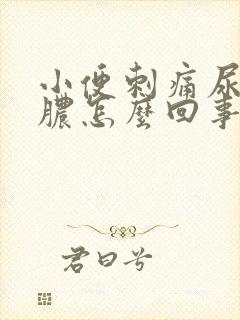 小便刺痛尿
膿怎麼回事
君曰兮